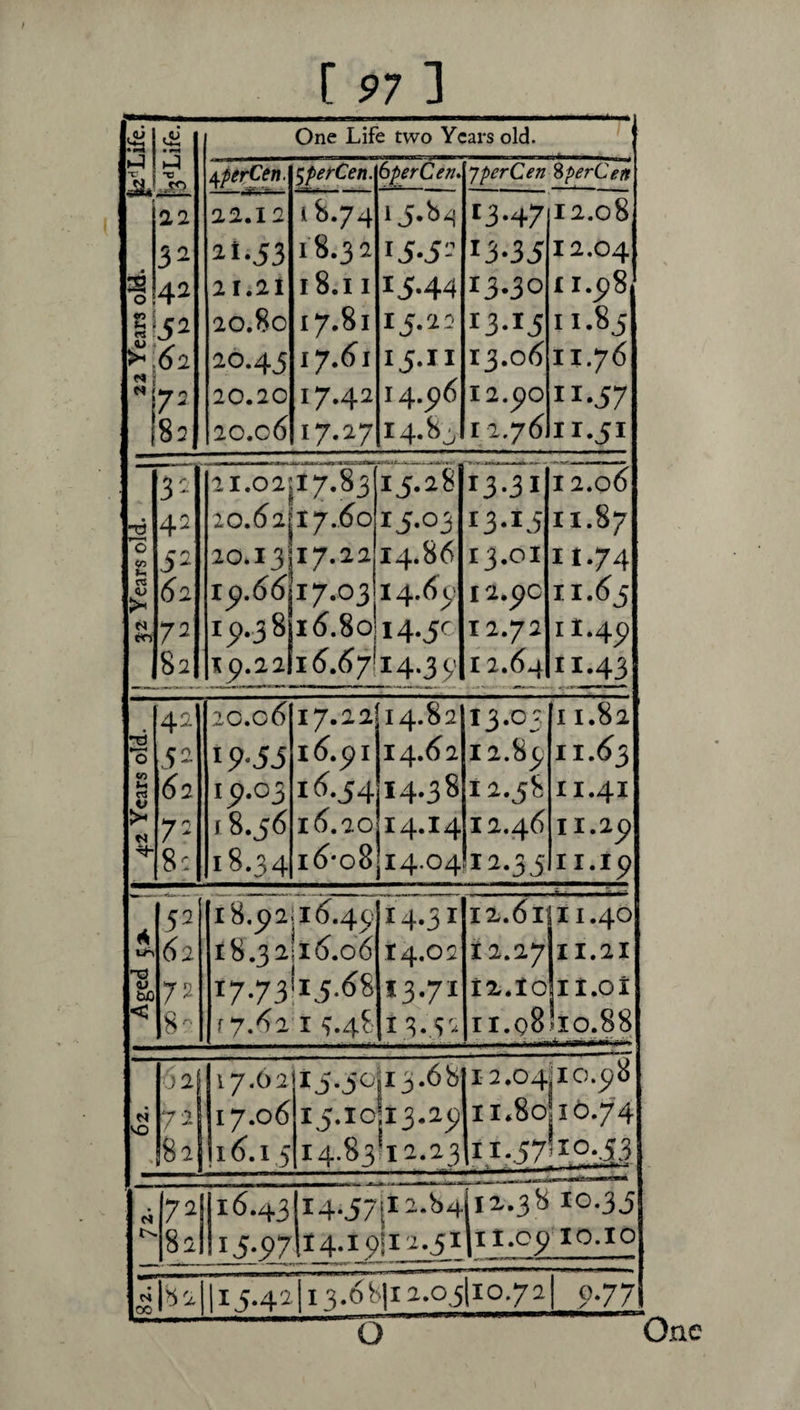 [ 97 ]
2d Life. 3d Life. One Life two Years old.
4perCen. 5perCen. 6perCen. 7perCen 8perCen
22 Years old.
22 22.12 18.74 15.84 13.47 12.08
32 21.53 18.32 13.35 12.04
42 21.21 18.11 15.44 13.30 11.98
52 20.80 17.81 15.22 13.15 11.85
62 20.45 17.61 15.11 13.06 11.76
72 20.20 17.42 14.96 12.90 11.57
82 20.06 17.27 12.76 11.51
32 Years old.
32 21.02 17.83 15.28 13.31 12.06
42 20.62 17.60 15.03 13.15 11.87
52 20.13 17.22 14.86 13.01 11.74
62 19.66 17.03 14.69 12.90 11.65
72 19.38 16.80 14.50 12.72 11.49
82 19.22 16.67 14.39 12.64 11.43
42 Years old.
42 20.06 17.22 14.82 11.82
52 19.55 16.91 14.62 12.89 11.63
62 19.03 16.54 14.38 12.58 11.41
72 18.56 16.20 14.14 12.46 11.29
82 18.34 16.08 14.04 12.35 11.19
Aged 52.
52 18.92 16.49 14.31 12.61 11.40
62 18.32 16.06 14.02 12.27 11.21
72 17.73 15.68 13.71 12.10 11.01
82 17.62 15.48 13.52 11.98 10.88
62.
62 17.62 15.50 13.68 12.04 10.98
72 17.06 15.10 13.29 11.80 10.74
82 16.15 14.83 12.23 11.57 10.53
72.
72 16.43 14.57 12.84 12.38 10.35
82 15.97 14.19 12.51 11.09 10.10
82. 82 15.42 13.68 12.05 10.72 9.77
O One